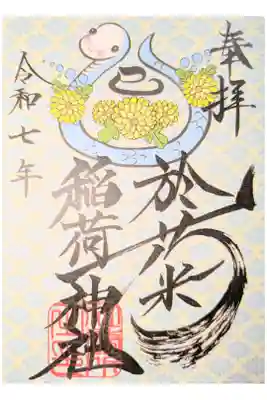 奉拝
巳
於花米
稲荷神社
令和七年